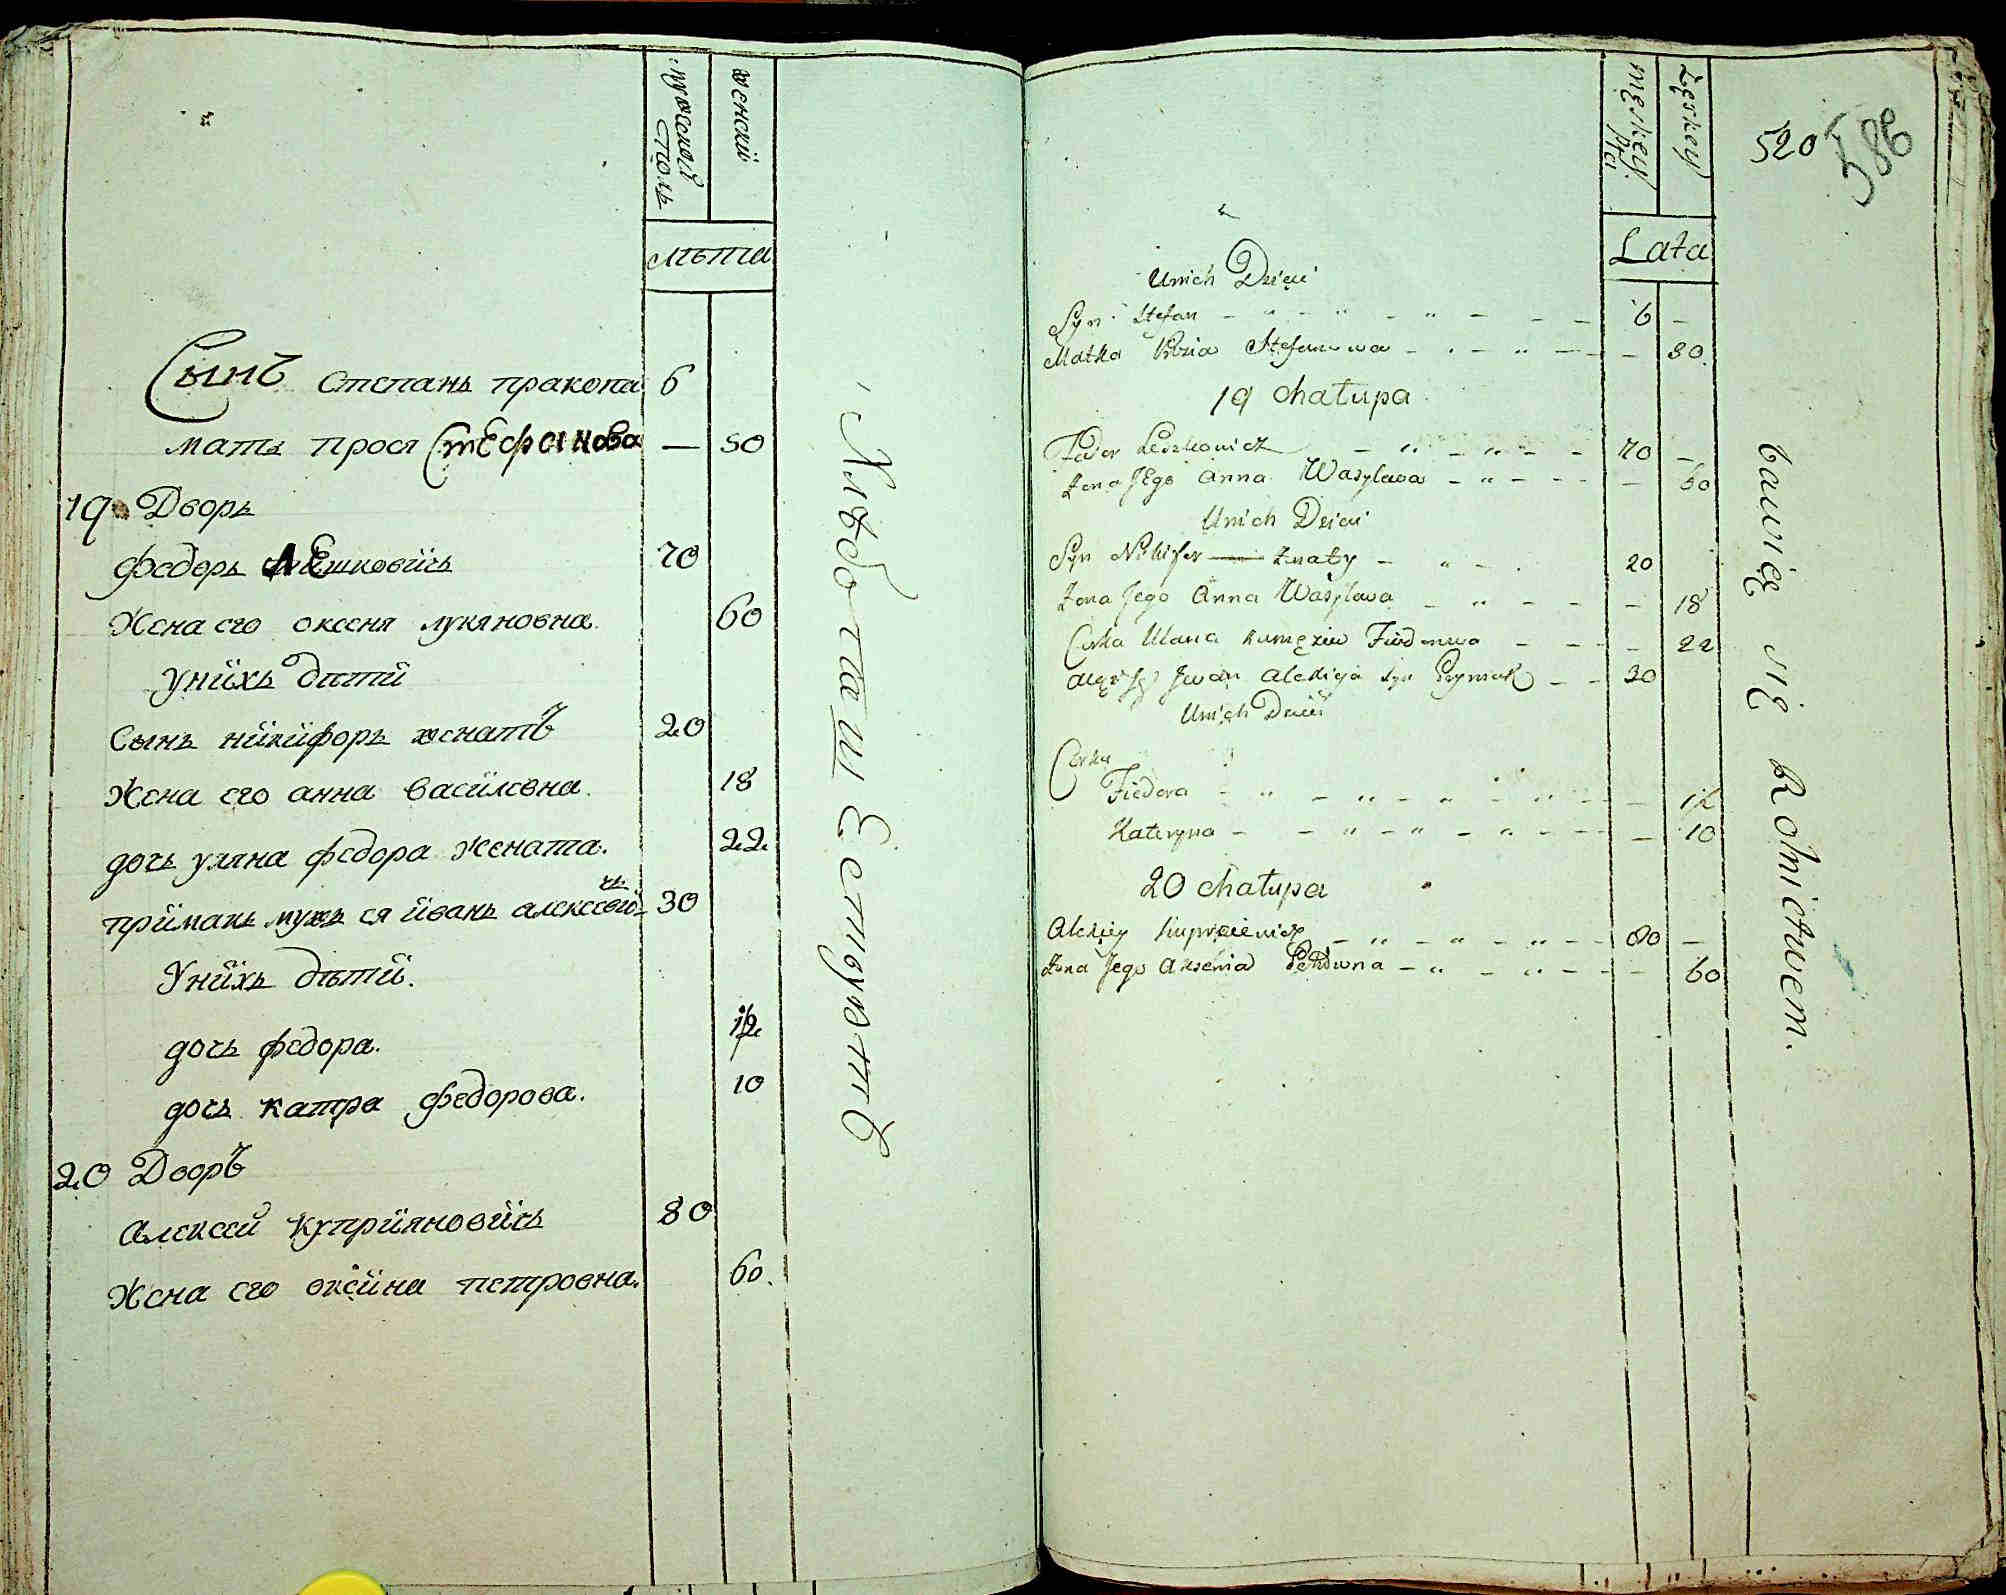 мужской полъ
женский
лѣта
Сынъ степанъ пракопа 6
мать прося Стефанова — 50
19 Дворъ
федоръ лЕшковичъ 70
Жена его оксеня лукяновна. 60
унихъ дѣти
Сынъ никифоръ женатъ 20
Жена его анна василевна. 18
дочь уляна федора жената. 22
приманъ мужъ ея иванъ алексеевичъ 30
Унихъ дѣти.
дочь федора. 12
дочь катра федорова. 10
20 Дворъ
Алексей куприяновичъ 80
Жена его оксина петровна. 60.
Хлѣбопашествуютъ
520
586
męskey płci
Żęskey
Lata
Unich Dzieci
Syn Stefan 6 —
Matka Prosia Stefanowa — 80
19 Chałupa
Fedor Leszkowicz 70 —
Żona Jego Anna Wasylewa — 60
Unich Dzieci
Syn Nikifor żonaty 20
Żona Jego Anna Wasylewa — 18
Corka Ulana — 22
Iwan Alexieja syn Prymak 30
Unich Dzieci
Corka
Fiedora — 12
Kateryna — 10
20 Chałupa
Alexiey 80 —
Żona Jego Axenia Petrowna — 60
bawię się Rolnictwem.